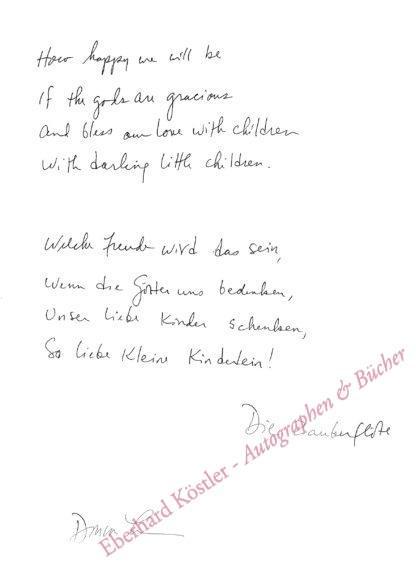 How happy we will be
If the gods are gracious
and bless our Love with children
with darling little children.
Welche Freude wird das sein,
Wenn die Götter uns bedenken,
Unser Liebe Kinder schenken,
So liebe kleine Kinderlein!
Die Zauberflöte
Eberhard Köstler - Autographen & Bücher